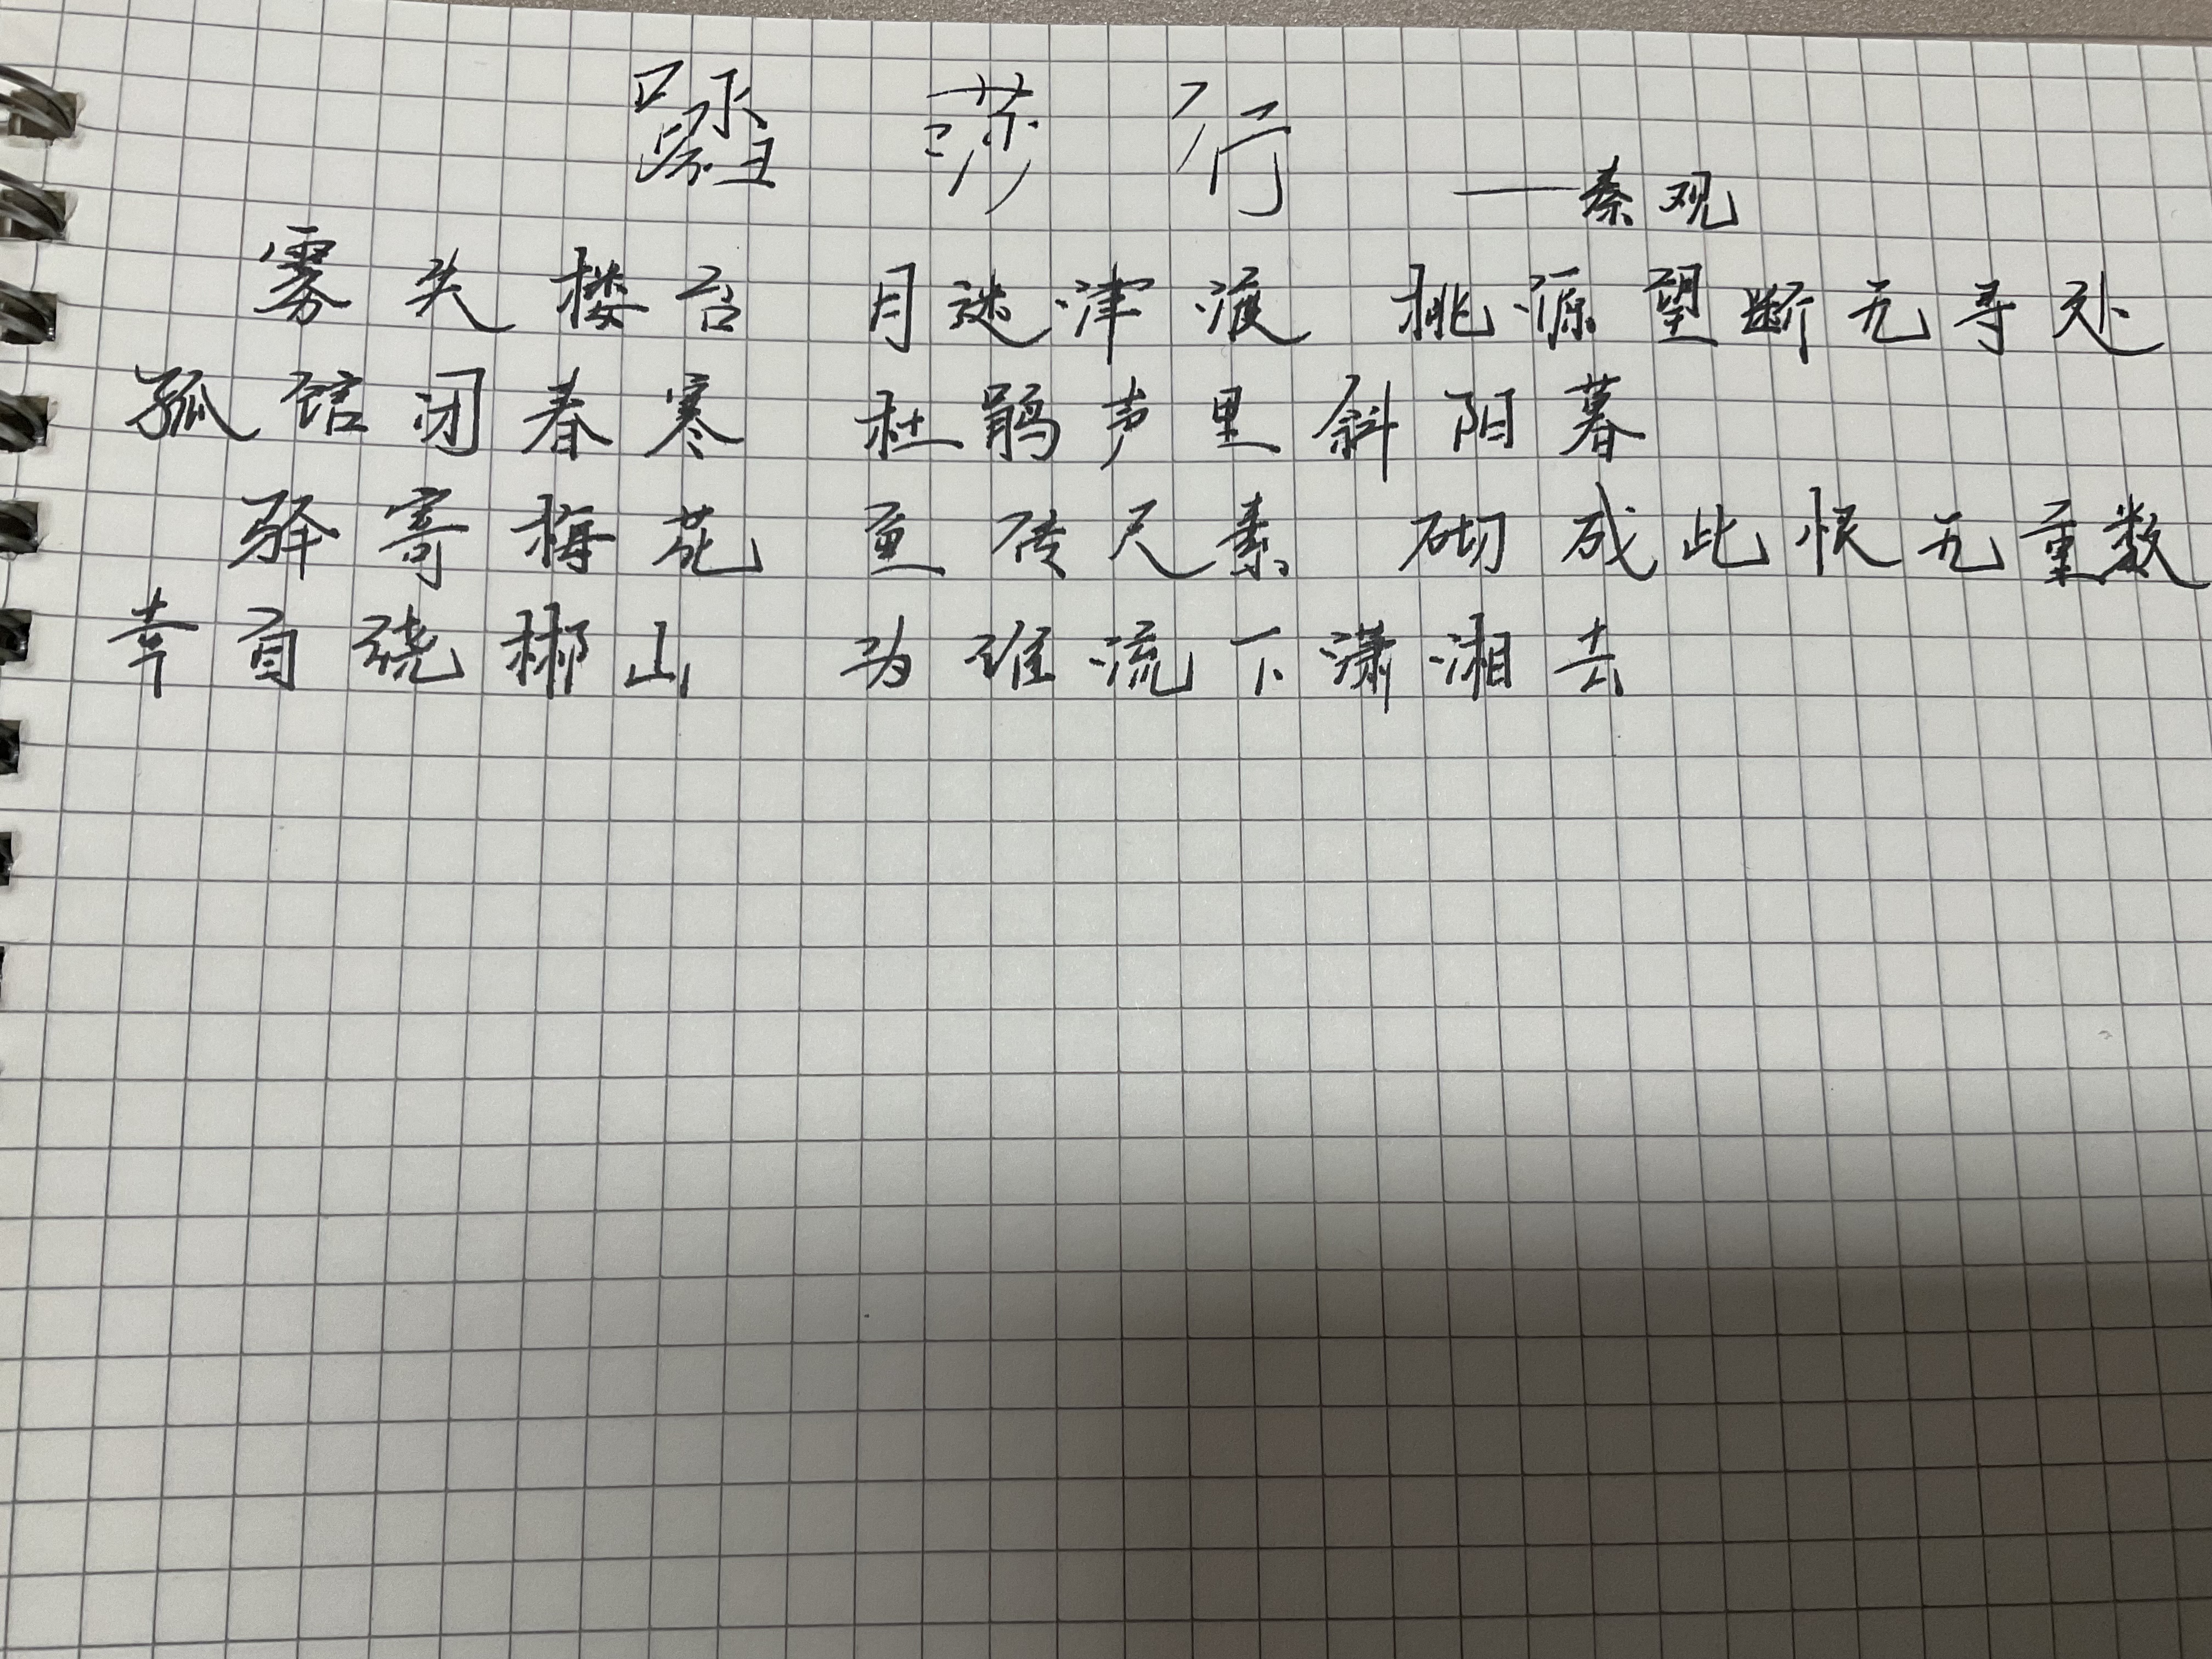 踏莎行
——秦观
雾失楼台 月迷津渡 桃源望断无寻处
孤馆闭春寒 杜鹃声里斜阳暮
驿寄梅花 鱼传尺素 砌成此恨无重数
幸自绕郴山 为谁流下潇湘去